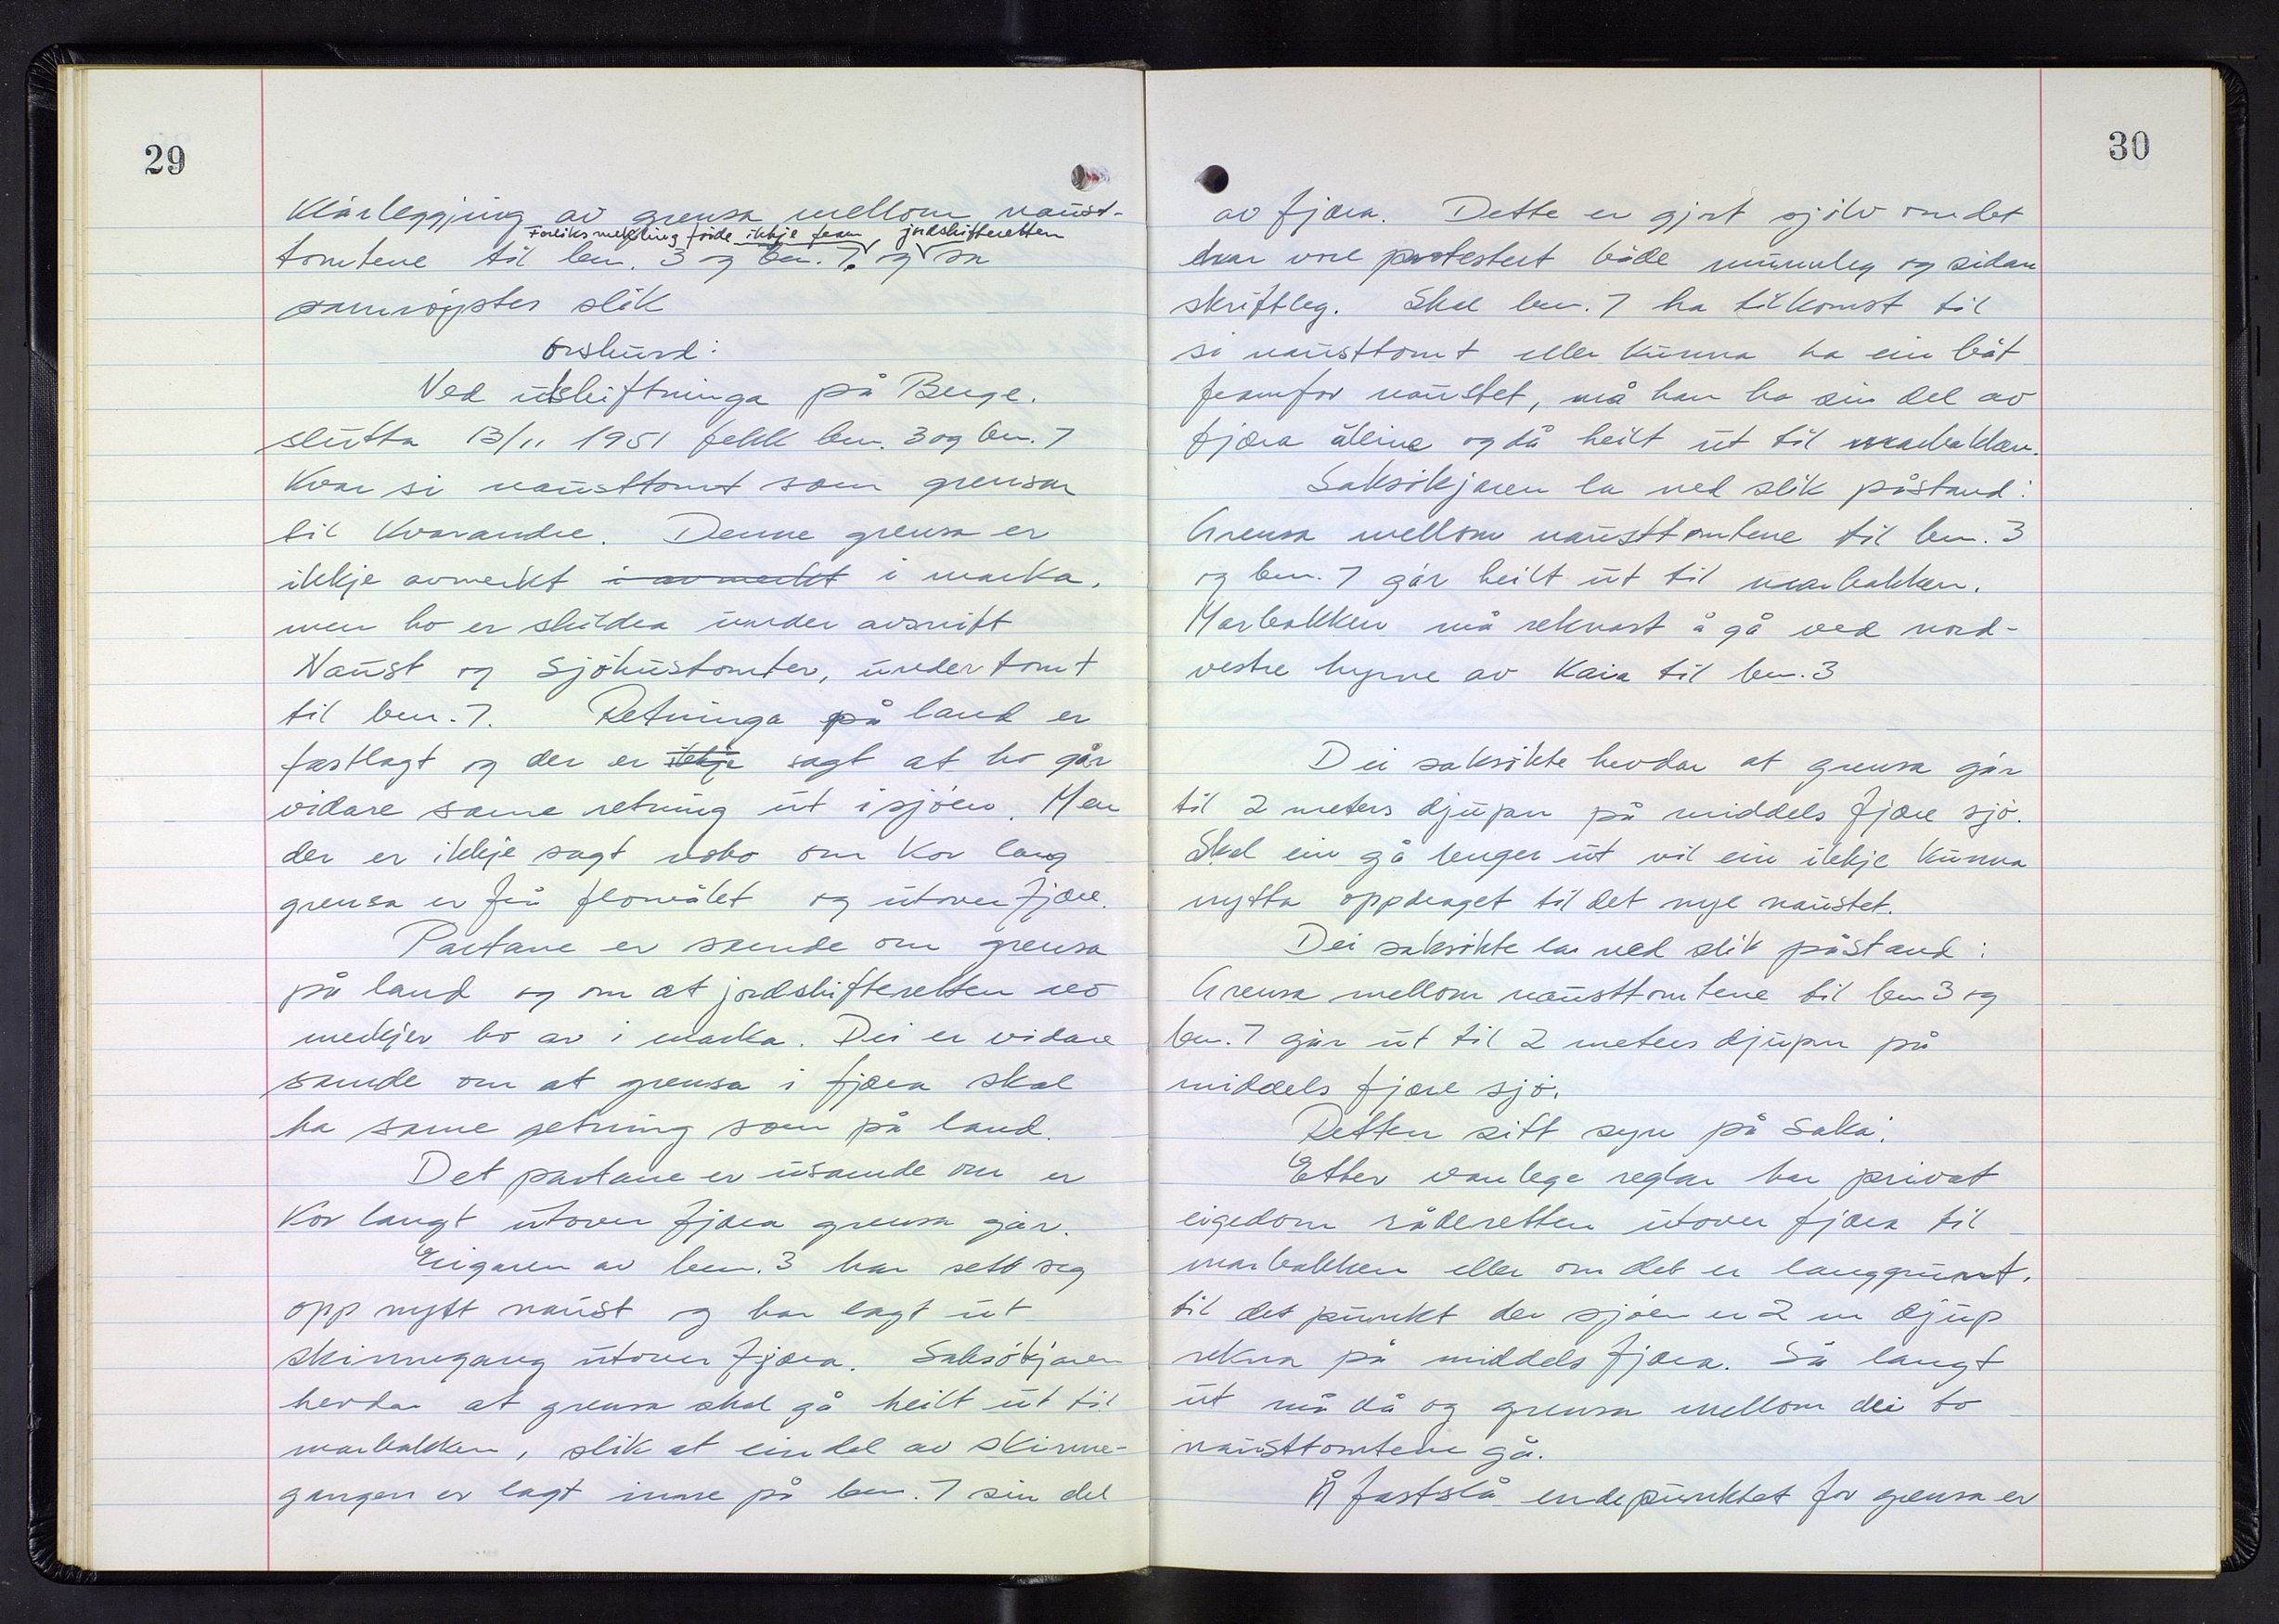 29
Klårleggjing av grensa mellom naust-
Forliksmekling förde ikkje fram jordskifteretten
tomtene til bnr. 3 og bnr. 7. og sa
samröystes slik
orskurd:
Ved utskiftninga på Berge.
slutta 13/11 1951 fekk bnr. 3 og bnr. 7
kvar si nausttomt som grensar
til kvarandre. Denne grensa er
ikkje avmerkt i avmerkt i marka,
men ho er skildra under avsnitt
Naust og sjöhustomter, under tomt
til bnr. 7. Retninga på land er
fastlagt og der er ikkje sagt at ho går
vidare same retning ut i sjöen. Men
der er ikkje sagt noko om kor lang
grensa er frå flomålet og utover fjære.
Partane er samde om grensa
på land og om at jordskifteretten no
merkjer ho av i marka. Dei er vidare
samde om at grensa i fjæra skal
ha same retning som på land.
Det partane er usamde om er
kor langt utover fjæra grensa går.
Eigaren av bnr. 3 har sett seg
opp nytt naust og har lagt ut
skinnegang utover fjæra. Saksökjaren
hevdar at grensa skal gå heilt ut til
marbakken, slik at ein del av skinne-
gangen er lagt inne på bnr. 7 sin del
30
av fjæra. Dette er gjort sjölv om det
har vore protestert både munnleg og sidan
skriftleg. Skal bnr. 7 ha tilkomst til
si nausttomt eller kunna ha ein båt
framfor naustet, må han ha sin del av
fjæra åleine og då heilt ut til marbakken.
Saksökjaren la ned slik påstand:
Grensa mellom nausttomtene til bnr. 3
og bnr. 7 går heilt ut til marbakken.
Marbakken må reknast å gå ved nord-
vestre hyrne av kaia til bnr. 3
Dei saksökte hevdar at grensa går
til 2 meters djupn på middels fjære sjö.
Skal ein gå lenger ut vil ein ikkje kunna
nytta oppdraget til det nye naustet.
Dei saksökte la ned slik påstand:
Grensa mellom nausttomtene til bnr 3 og
bnr. 7 går ut til 2 meters djupn på
middels fjære sjö.
Retten sitt syn på saka:
Etter vanlege reglar har privat
eigedom råderetten utover fjæra til
marbakken eller om det er langgrunt,
til det punkt der sjöen er 2 m djup
rekna på middels fjæra. Så langt
ut må då og grensa mellom dei to
nausttomtene gå.
Å fastslå endepunktet for grensa er